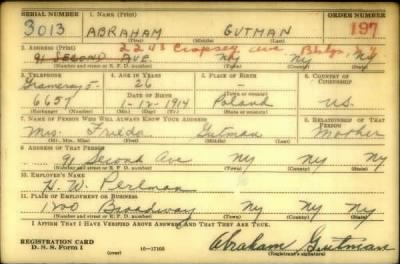 SERIAL NUMBER 1. NAME (Print) ORDER NUMBER
3013 ABRAHAM GUTMAN 197
(First) (Middle) (Last)
2243 Cropsey Ave Bklyn, N.Y.
2. ADDRESS (Print)
91 SECOND AVE. NY NY NY
(Number and street or R. F. D. number) (Town) (County) (State)
3. TELEPHONE 4. AGE IN YEARS 5. PLACE OF BIRTH 6. COUNTRY OF CITIZENSHIP
Gramercy 5- 26
6657 1-12-1914 Poland U.S.
7. NAME OF PERSON WHO WILL ALWAYS KNOW YOUR ADDRESS 8. RELATIONSHIP OF THAT PERSON
Mrs. Frieda Gutman Mother
(Mr., Mrs., Miss) (First) (Middle) (Last)
9. ADDRESS OF THAT PERSON
91 Second Ave NY NY NY
(Number and street or R. F. D. number) (Town) (County) (State)
10. EMPLOYER'S NAME
H. W. Perlman
11. PLACE OF EMPLOYMENT OR BUSINESS
1200 Broadway NY NY NY
(Number and street or R. F. D. number) (Town) (County) (State)
I AFFIRM THAT I HAVE VERIFIED ABOVE ANSWERS AND THAT THEY ARE TRUE.
REGISTRATION CARD
D. S. S. Form 1 (over) 16-17105 Abraham Gutman
(Registrant's signature)